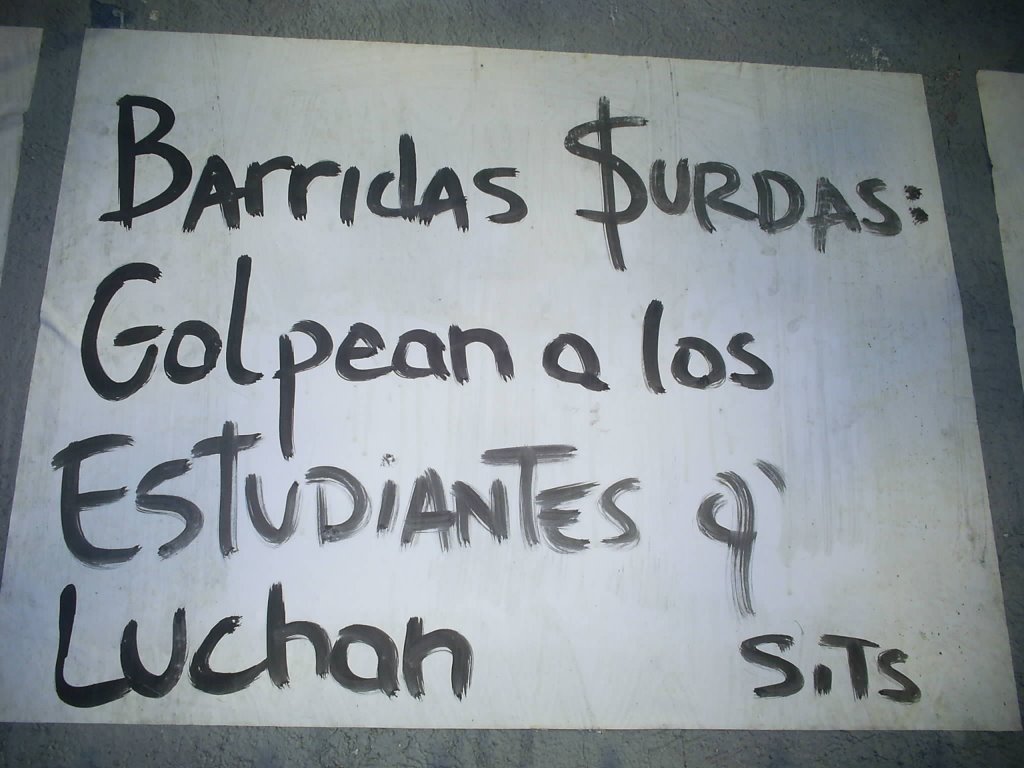 BArridAS $URDAS:
Golpean a los
ESTUDiANTES q'
Luchan SiTS